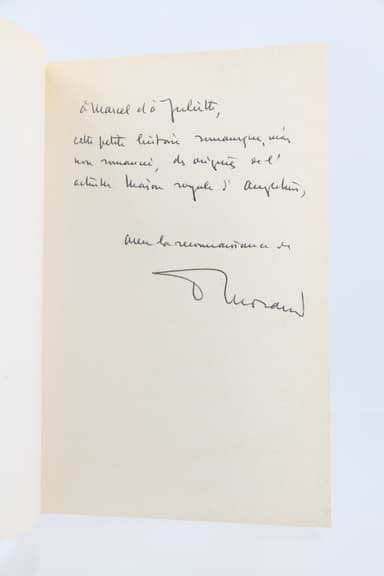 à Marcel et à Juliette,
cette petite histoire romanesque, mais
non romancée, des origines de l'
actuelle Maison royale d'Angleterre,
avec la reconnaissance de
P Morand